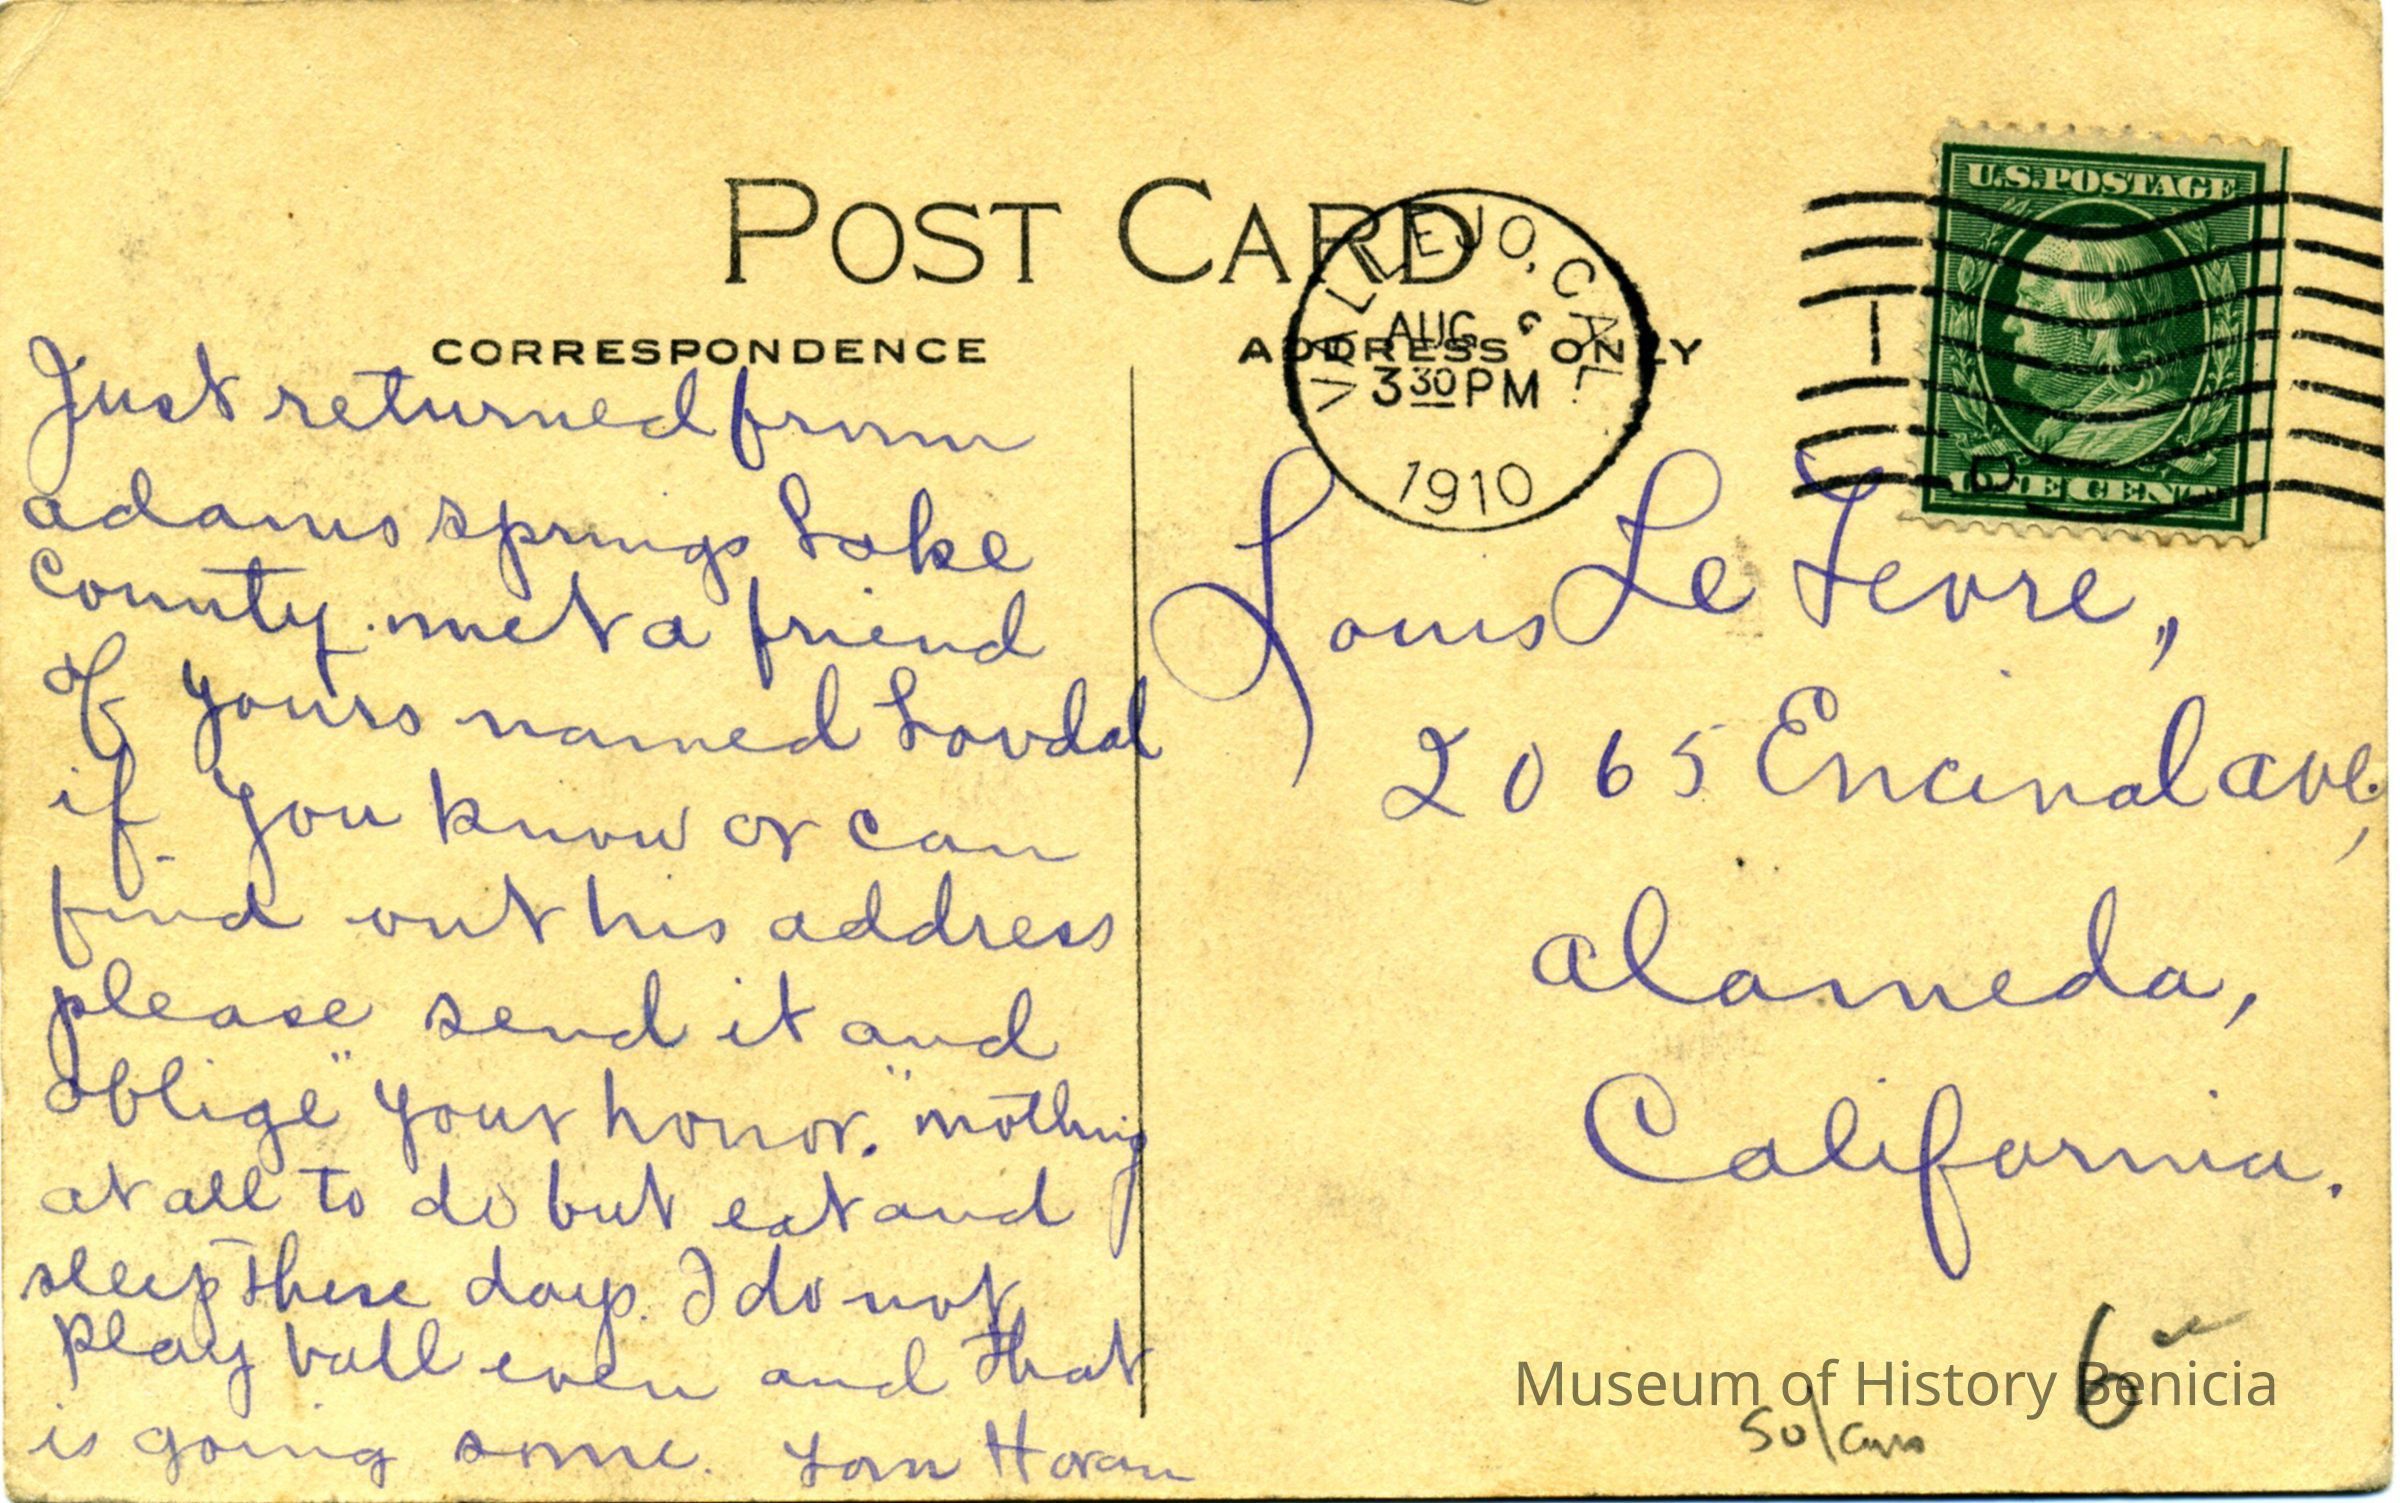 POST CARD
CORRESPONDENCE
ADDRESS ONLY
VALLEJO, CAL.
AUG
3 30 PM
1910
U.S. POSTAGE
ONE CENT
Just returned from
adams springs Lake
County. met a friend
of yours named Lovdal
if you know or can
find out his address
please send it and
oblige "your honor." nothing
at all to do but eat and
sleep these days. I do not
play ball even and that
is going some. Tom Horan
Louis Le Fevre,,
2065 Encinal ave,
alameda,
California.
6
Museum of History Benicia